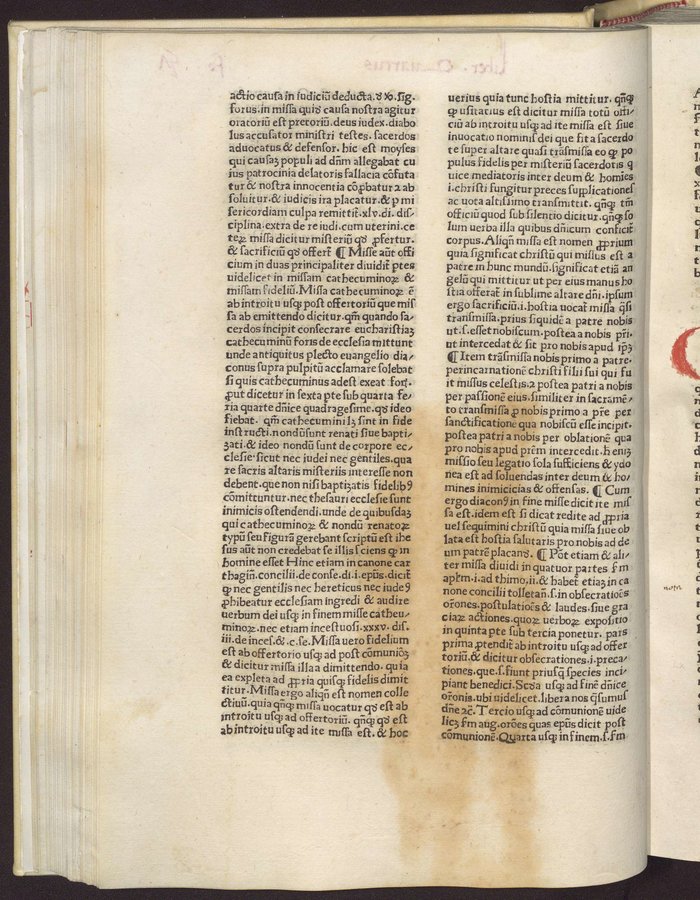 Liber. Quartus
actio causa in iudiciū deducta. ꝙ xo. sig.
forus. in missa quiꝰ causa nostra agitur
oratoriū est pretoriū. deus iudex. diabo
lus accusator ministri testes. sacerdos
aduocatus & defensor. hic est moyses
qui causaꝫ populi ad dn̄m allegabat cu
ius patrocinia delatoris fallacia cōfuta
tur & nostra innocentia cōprobatur ⁊ ab
soluitur. & iudicis ira placatur. & ꝑ mi
sericordiam culpa remittit̄. xlv. di. dis⸗
ciplina. extra de re iudi. cum uterini. ce
teꝝ missa dicitur misteriū qꝫ ꝓfertur.
& sacrificiū qꝫ offert̄ ¶ Misse aūt offi
cium in duas principaliter diuidit̄ ptes
uidelicet in missam cathecuminoꝝ &
missam fideliū. Missa cathecuminoꝝ ē
ab introitu usqꝫ post offertoriū que mis⸗
sa ab emittendo dicitur. qm̄ quando sa⸗
cerdos incipit consecrare eucharistiaꝫ
cathecuminū foris de ecclesia mittunt
unde antiquitus plecto euangelio dia⸗
conus supra pulpitū acclamare solebat
si quis cathecuminus adest exeat fors.
put dicetur in sexta pte sub quarta fe⸗
ria quarte dn̄ice quadragesime. qꝫ ideo
fiebat. qm̄ cathecumini lꝫ sint in fide
instructi. nondū sunt renati siue bapti⸗
zati. & ideo nondū sunt de corpore ec⸗
clesie. sicut nec iudei nec gentiles. qua
re sacris altaris misteriis interesse non
debent. que non nisi baptizatis fidelibꝰ
cōmittuntur. nec thesauri ecclesie sunt
inimicis ostendendi. unde de quibusdaꝫ
qui cathecuminoꝝ & nondū renatoꝝ
typū seu figurā gerebant scriptū est ihe
sus aūt non credebat se illis sciens ꝙ in
homine esset Hinc etiam in canone car
thagin̄. concilii. de conse. di. i. epūs. dicit̄
ꝙ nec gentilis nec hereticus nec iudeꝰ
ꝓhibeatur ecclesiam ingredi & audire
uerbum dei usqꝫ in finem misse cathecu⸗
minoꝝ. nec etiam incestuosi. xxxv. dis.
iii. de inces. & .c. se. Missa uero fidelium
est ab offertorio usqꝫ ad post comuniōꝫ
& dicitur missa illa a dimittendo. quia
ea expleta ad ꝓpria quisqꝫ fidelis dimit
titur. Missa ergo aliqn̄ est nomen colle
ctiuū. quia qn̄qꝫ missa uocatur qꝫ est ab
introitu usqꝫ ad offertoriū. qn̄qꝫ qꝫ est
ab introitu usqꝫ ad ite missa est. & hoc
uerius quia tunc hostia mittitur. qn̄qꝫ
ꝙ usitatius est dicitur missa totū offi⸗
ciū ab introitu usqꝫ ad ite missa est siue
inuocatio nominis dei que fit a sacerdo
te super altare quasi trāsmissa eo ꝙ po
pulus fidelis per misteriū sacerdotis q
uice mediatoris inter deum & homīes
i. christi fungitur preces supplicationes
ac uota altissimo transmittit. qn̄qꝫ tm̄
officiū quod sub silentio dicitur. qn̄qꝫ so
lum uerba illa quibus dn̄icum conficit̄
corpus. Aliqn̄ missa est nomen ꝓprium
quia significat christū qui missus est a
patre in hunc mundū. significat etiā an
gelū qui mittitur ut per eius manus ho
stia offerat̄ in sublime altare dn̄i. ipsum
ergo sacrificiū. i. hostia uocat̄ missa q̄si
transmissa. prius siquidē a patre nobis
ut. s. esset nobiscum. postea a nobis pr̄i.
ut intercedat & sit pro nobis apud ipꝫ
¶ Item trāsmissa nobis primo a patre.
per incarnationē christi filii sui qui fu
it missus celestis. ⁊ postea patri a nobis
per passionē eius. similiter in sacramē⸗
to transmissa ꝑ nobis primo a pr̄e per
sanctificatione qua nobiscū esse incipit.
postea patri a nobis per oblationē qua
pro nobis apud prēm intercedit. heniꝫ
missio seu legatio sola sufficiens & ydo
nea est ad soluendas inter deum & ho⸗
mines inimicicias & offensas. ¶ Cum
ergo diaconꝰ in fine misse dicit ite mis⸗
sa est. idem est si dicat redite ad ꝓpria
uel sequimini christū quia missa siue ob
lata est hostia salutaris pro nobis ad de
um patrē placans. ¶ Pōt etiam & ali⸗
ter missa diuidi in quatuor partes fm
apl̄m. i. ad thimo. ii. & habet̄ etiaꝫ in ca
none concilii tolletan̄. s. in obsecratiōes
or̄ones. postulatiōes & laudes. siue gra
ciaꝝ actiones. quoꝝ uerboꝝ expositio
in quinta pte sub tercia ponetur. pars
prima ꝓtendit̄ ab introitu usqꝫ ad offer
toriū. & dicitur obsecrationes. i. preca⸗
tiones. que. s. fiunt priusq̄ species inci⸗
piant benedici. Scd̄a usqꝫ ad finē dn̄ice
or̄onis. ubi uidelicet. libera nos q̄sumus
dn̄e ⁊c̄. Tercio usqꝫ ad cōmunionē uide
licꝫ fm aug. orōes quas epūs dicit post
cōmunionē. Quarta usqꝫ in finem. s. fm